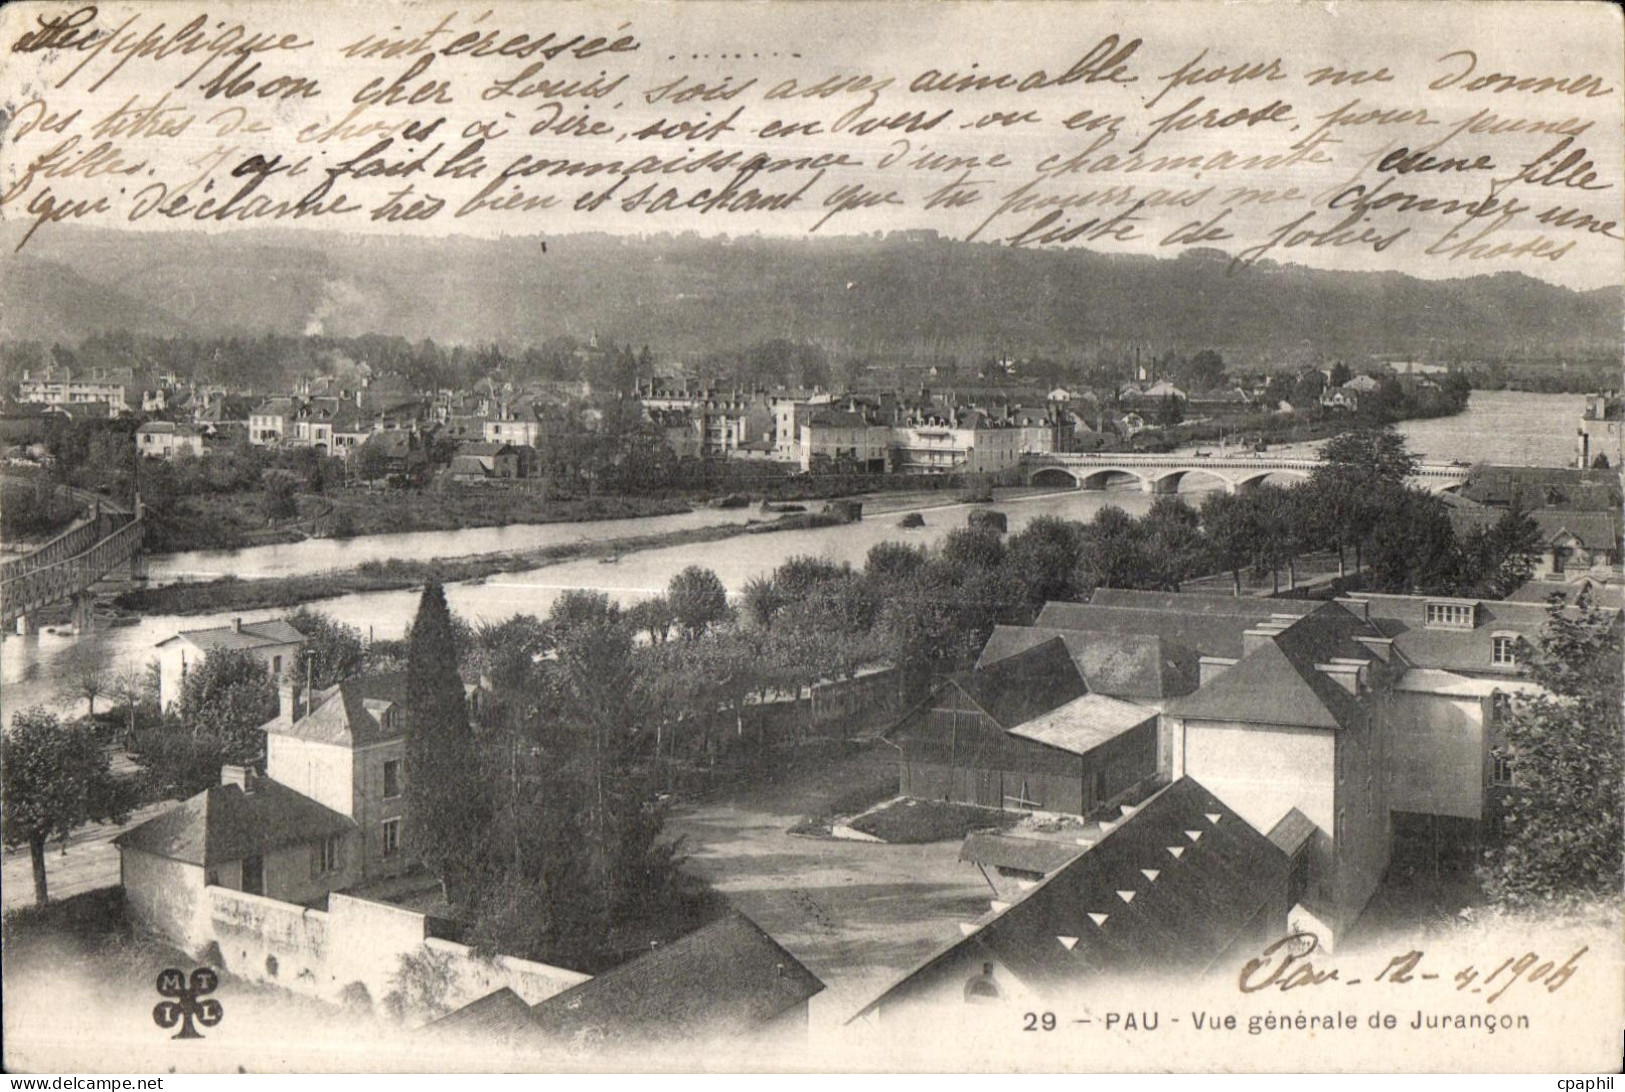 Supplique intéressée ........
Mon cher Louis, sois assez aimable pour me donner
des titres de choses à dire, soit en vers ou en prose, pour jeunes
filles. J'ai fait la connaissance d'une charmante jeune fille
qui déclame très bien et sachant que tu pourrais me donner une
liste de jolies choses
Pau - 12 - 4 1904
M T
I L
29 - PAU - Vue générale de Jurançon
https://www.delcampe.net
cpaphil